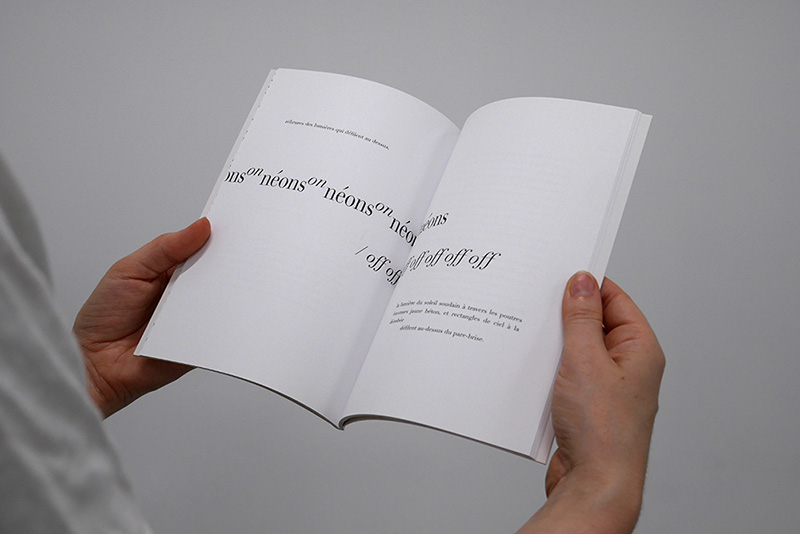 des lumières qui défilent au dessus,
ons on néons on néons on néo néons
/ off off off off off off
lumière du soleil soudain à travers les poutres
jaune béton, et rectangles de ciel à la
défilent au-dessus du pare-brise.